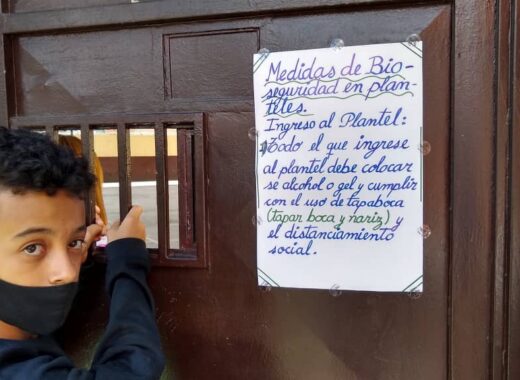 Medidas de Bio-
seguridad en plan-
teles.
Ingreso al Plantel:
Todo el que ingrese
al plantel debe colocar
se alcohol o gel y cumplir
con el uso de tapaboca
(tapar boca y ñariz) y
el distanciamiento
social.